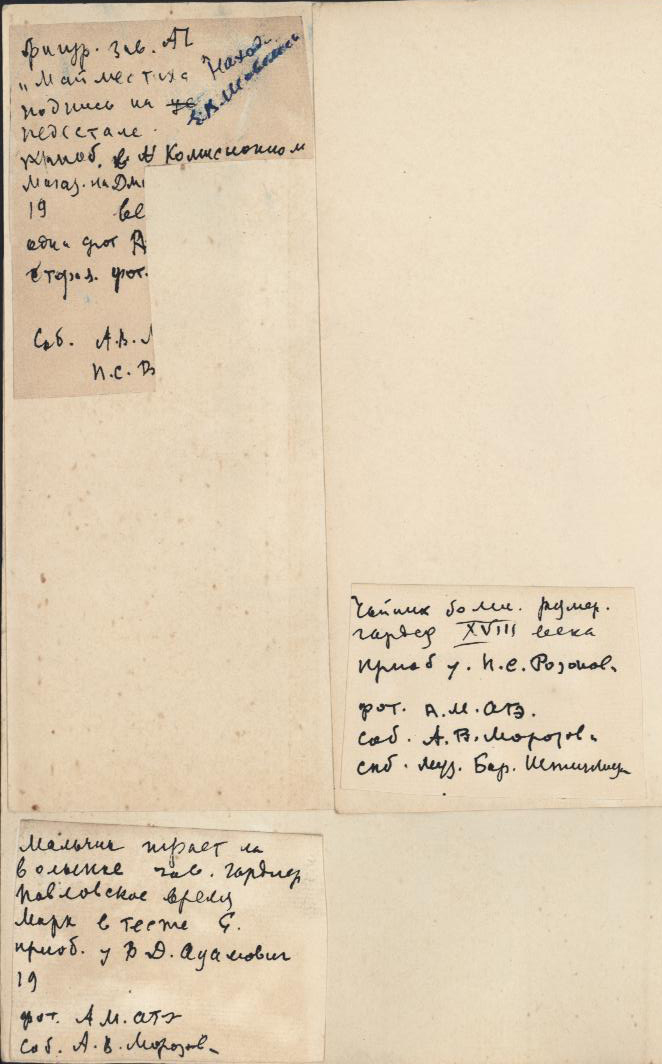 Фигур. зав. АП
„Маймест
подпись на
педестале.
приоб. в Комисионном
Магаз. на Дм
19 ве
одна фот А
вторая. фот.
Соб. А.В.
П.С. В
Находи
Чайник больш. размер.
гарднер XVIII века
приоб у. П.С. Розонов.
фот. А.М. АТЭ.
соб. А.В. Морозова
спб. муз. Бар. Штиглица
Мальчик играет на
волынке зав. гарднер
Павловское время
Марк в тесте G.
приоб. у В Д. Адамович
19
фот. А М. АТЭ
соб. А. В. Морозова